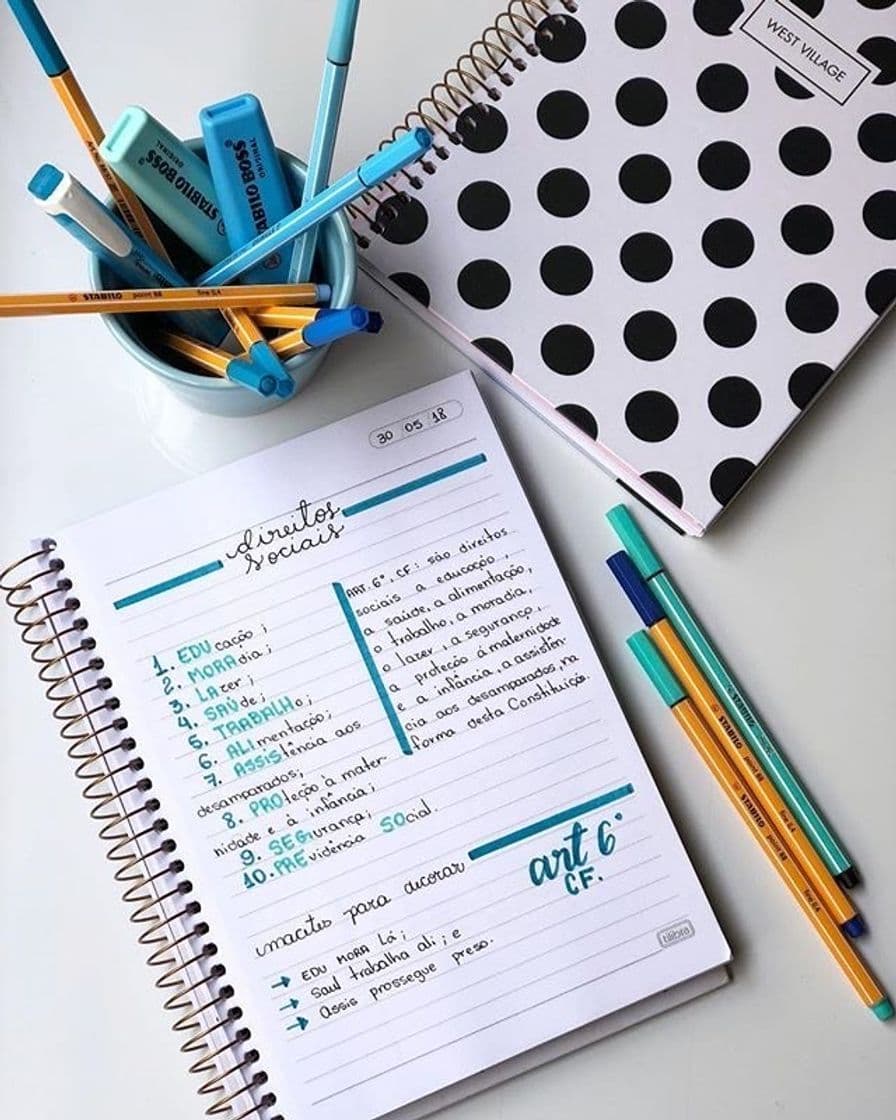 WEST VILLAGE
STABILO BOSS
ORIGINAL
STABILO BOSS
ORIGINAL
STABILO point 88 fine 0,4
30 05 18
direitos
sociais
1. EDUcação;
2. MORAdia;
3. LAzer;
4. SAÚde;
5. TRABALHo;
6. ALImentação;
7. ASSIStência aos
desamparados;
8. PROteção à mater-
nidade e à infância;
9. SEGurança;
10. PREvidência SOcial.
ART. 6º, CF: são direitos
sociais a educação,
a saúde, a alimentação,
o trabalho, a moradia,
o lazer, a segurança,
a proteção à maternidade
e à infância, a assistên-
cia aos desamparados, na
forma desta Constituição.
art 6º
CF.
macetes para decorar
→ EDU MORA LÁ;
→ Saul trabalha ali; e
→ Assis prossegue preso.
tilibra
STABILO point 88 fine 0,4
STABILO point 88 fine 0,4